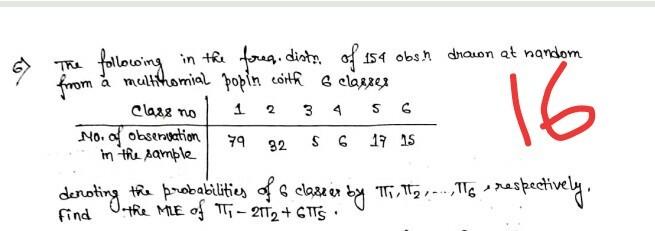 6) The following in the freq. distn. of 154 obs.n drawn at random
from a multinomial popln with 6 classes
Class no 1 2 3 4 5 6
No. of observation in the sample 79 32 5 6 17 15
denoting the probabilities of 6 classes by π1, π2, ..., π6, respectively.
find the MLE of π1 - 2π2 + 6π5.
16